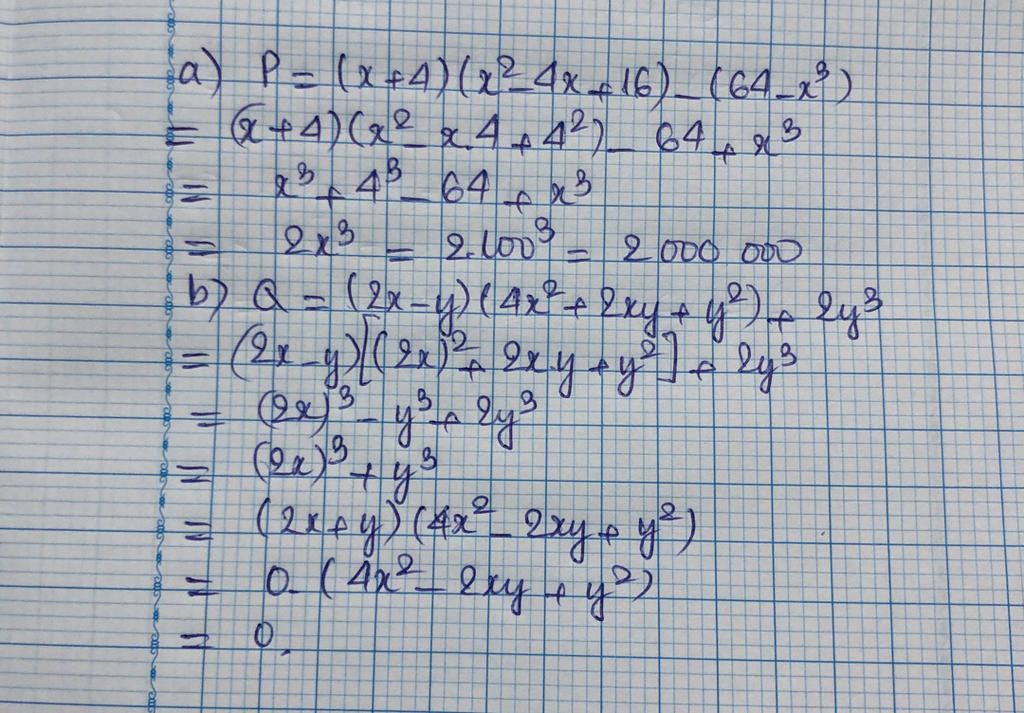 a) P = (x+4)(x² - 4x + 16) - (64 - x³)
= (x+4)(x² - x.4 + 4²) - 64 + x³
= x³ + 4³ - 64 + x³
= 2x³ = 2.100³ = 2 000 000
b) Q = (2x - y)(4x² + 2xy + y²) + 2y³
= (2x - y)[(2x)² + 2x.y + y²] + 2y³
= (2x)³ - y³ + 2y³
= (2x)³ + y³
= (2x + y)(4x² - 2xy + y²)
= 0.(4x² - 2xy + y²)
= 0.